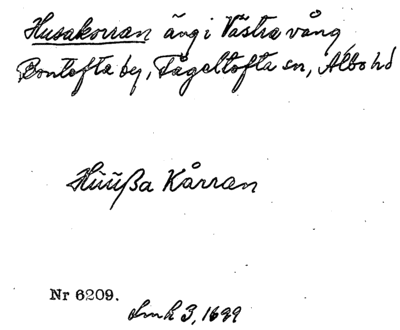 Husakorran äng i Västra vång
Bontofta by, Fågeltofta sn, Albo hd
Hüüßa Kårran
Nr 6209.
Lmh 3, 1699